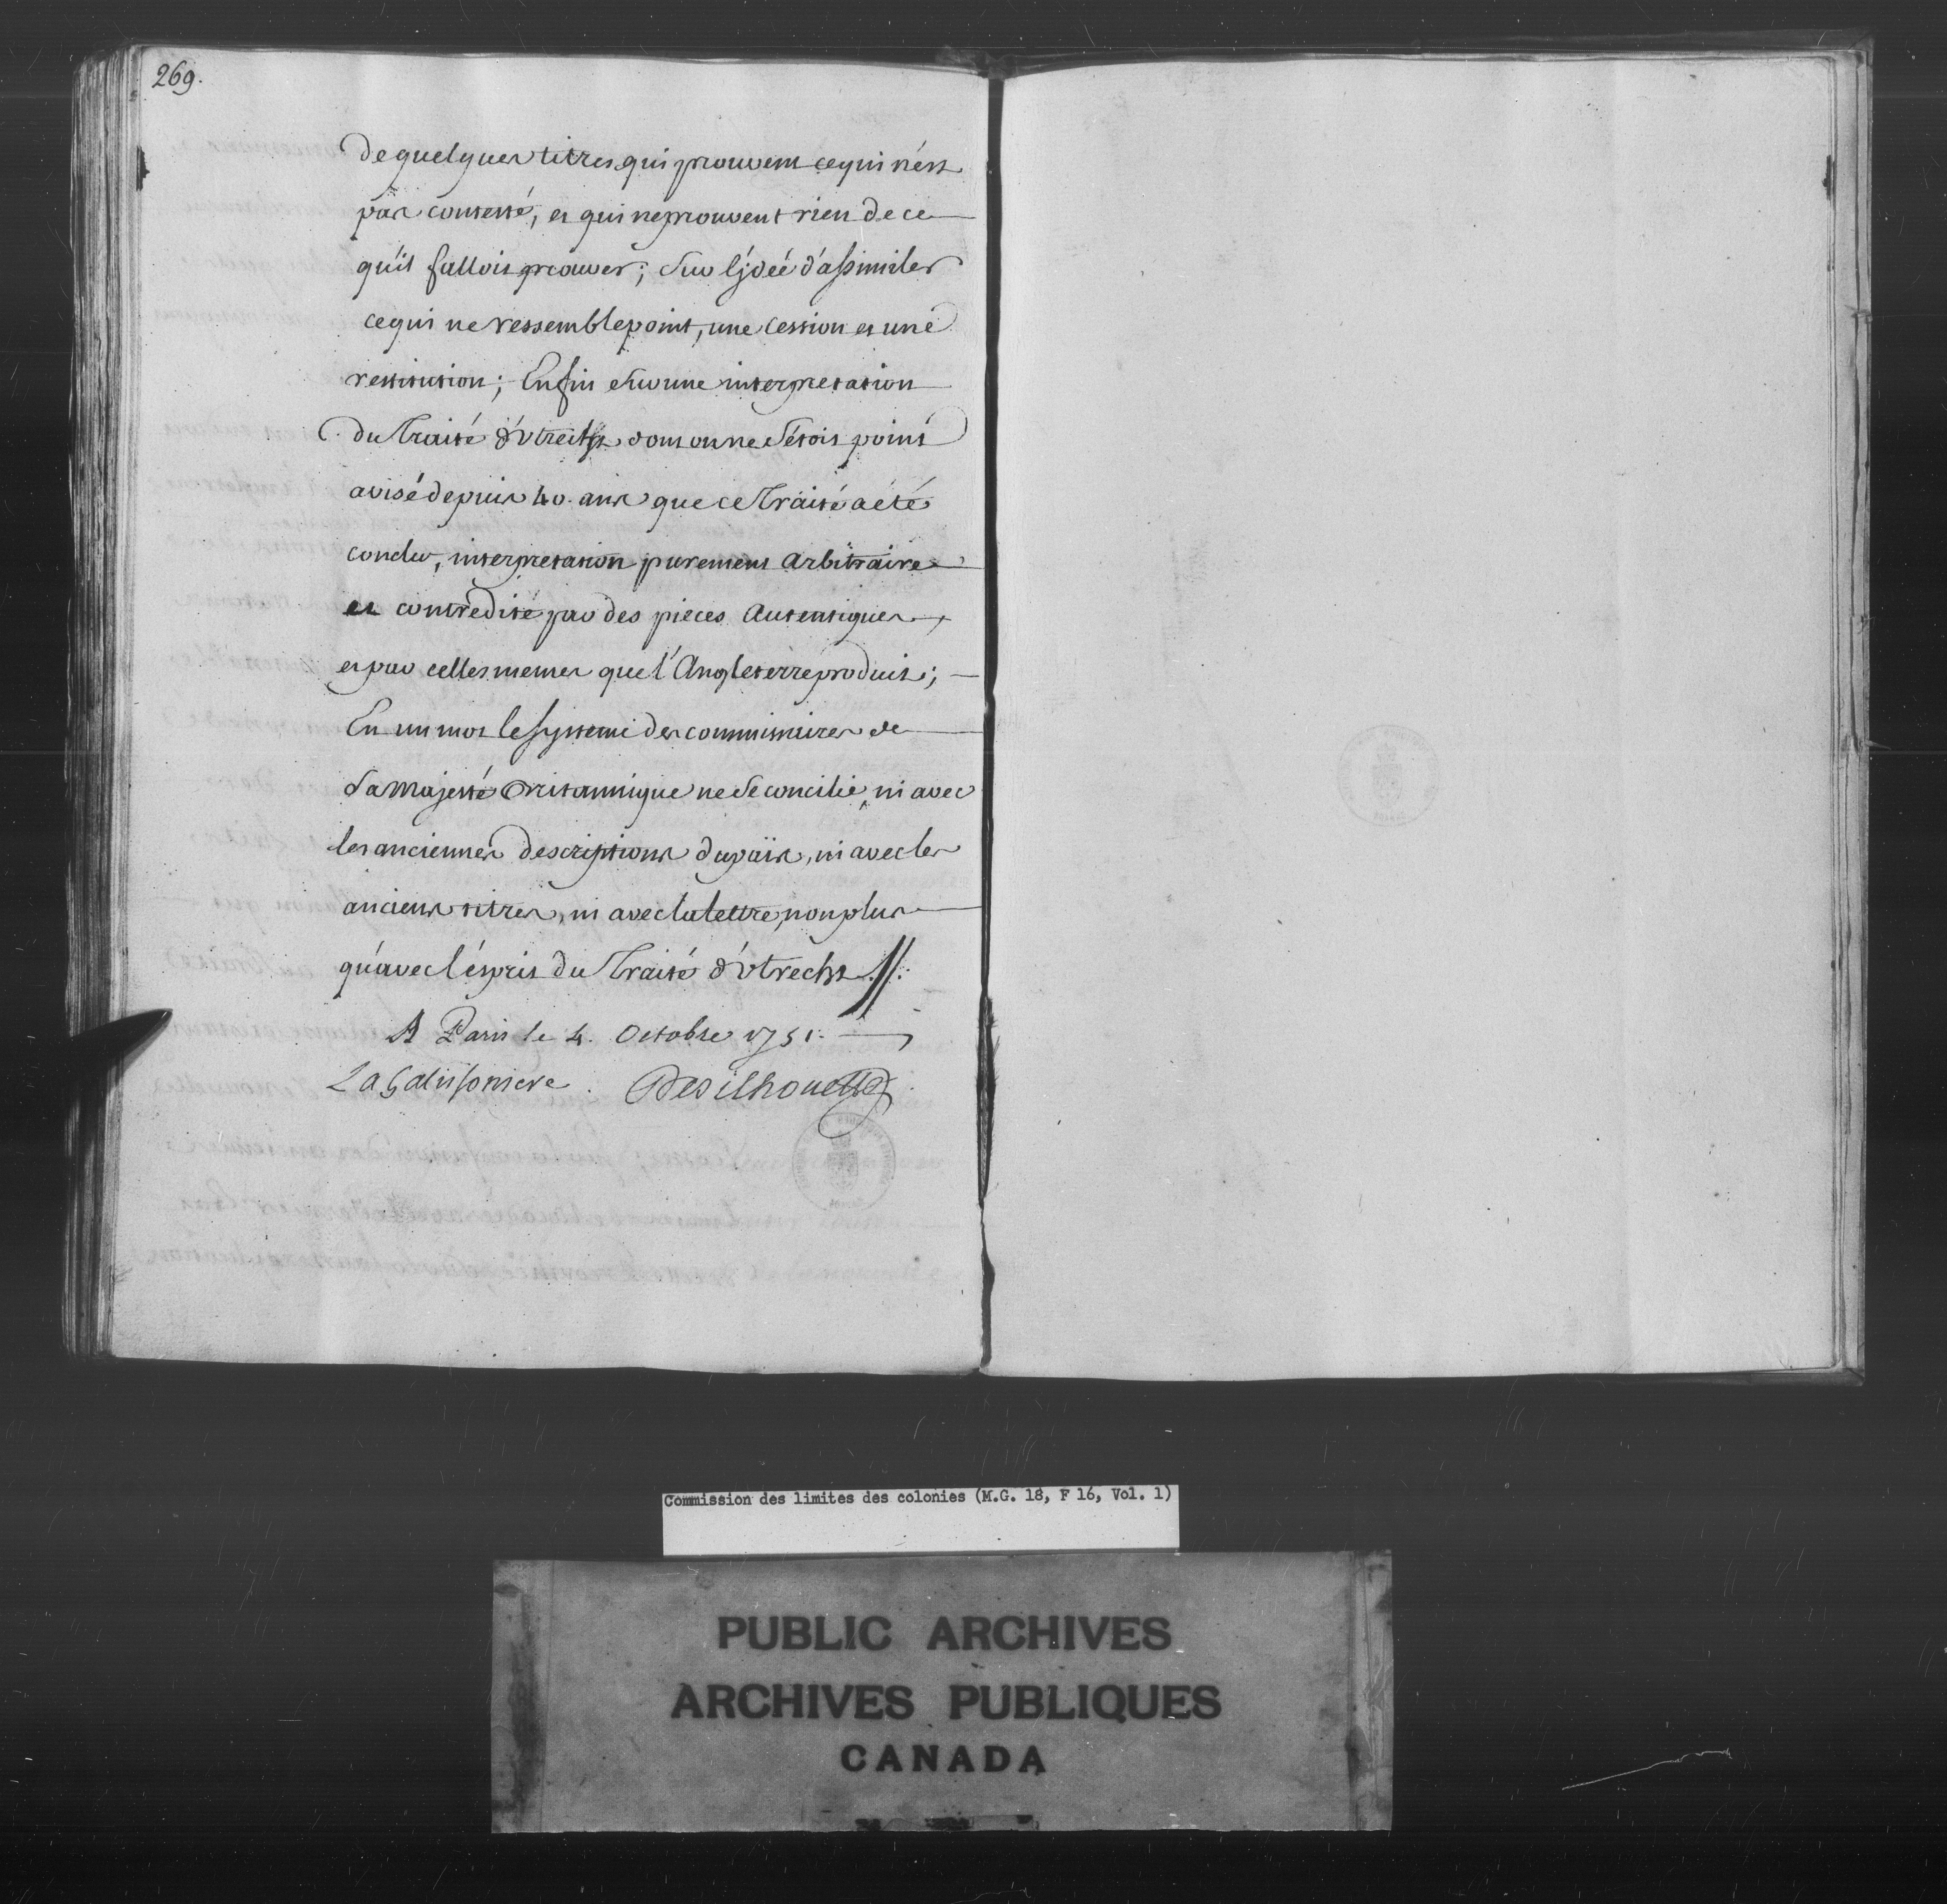 269.
de quelques titres qui prouvent ce qui n'est
pas contesté, et qui ne prouvent rien de ce
qu'il falloit prouver; Sur l'jdée d'assimiler
ce qui ne ressemble point, une Cession et une
restitution; Enfin Sur une interpretation
du Traité d'Utrecht dont on ne s'étoit point
avisé depuis 40. ans que ce Traité a été
conclu, interpretation purement Arbitraire
et contredite par des pieces Autentiques,
et par celles memes que l'Angleterre produit;
En un mot le systeme des commissaires de
Sa Majesté Britannique ne se concilie, ni avec
les anciennes descriptions du païs, ni avec les
anciens titres, ni avec la lettre, non plus
qu'avec l'esprit du Traité d'Utrecht //.
A Paris le 4. Octobre 1751.
La Galissoniere. De Silhouette
Commission des limites des colonies (M.G. 18, F 16, Vol. 1)
PUBLIC ARCHIVES
ARCHIVES PUBLIQUES
CANADA